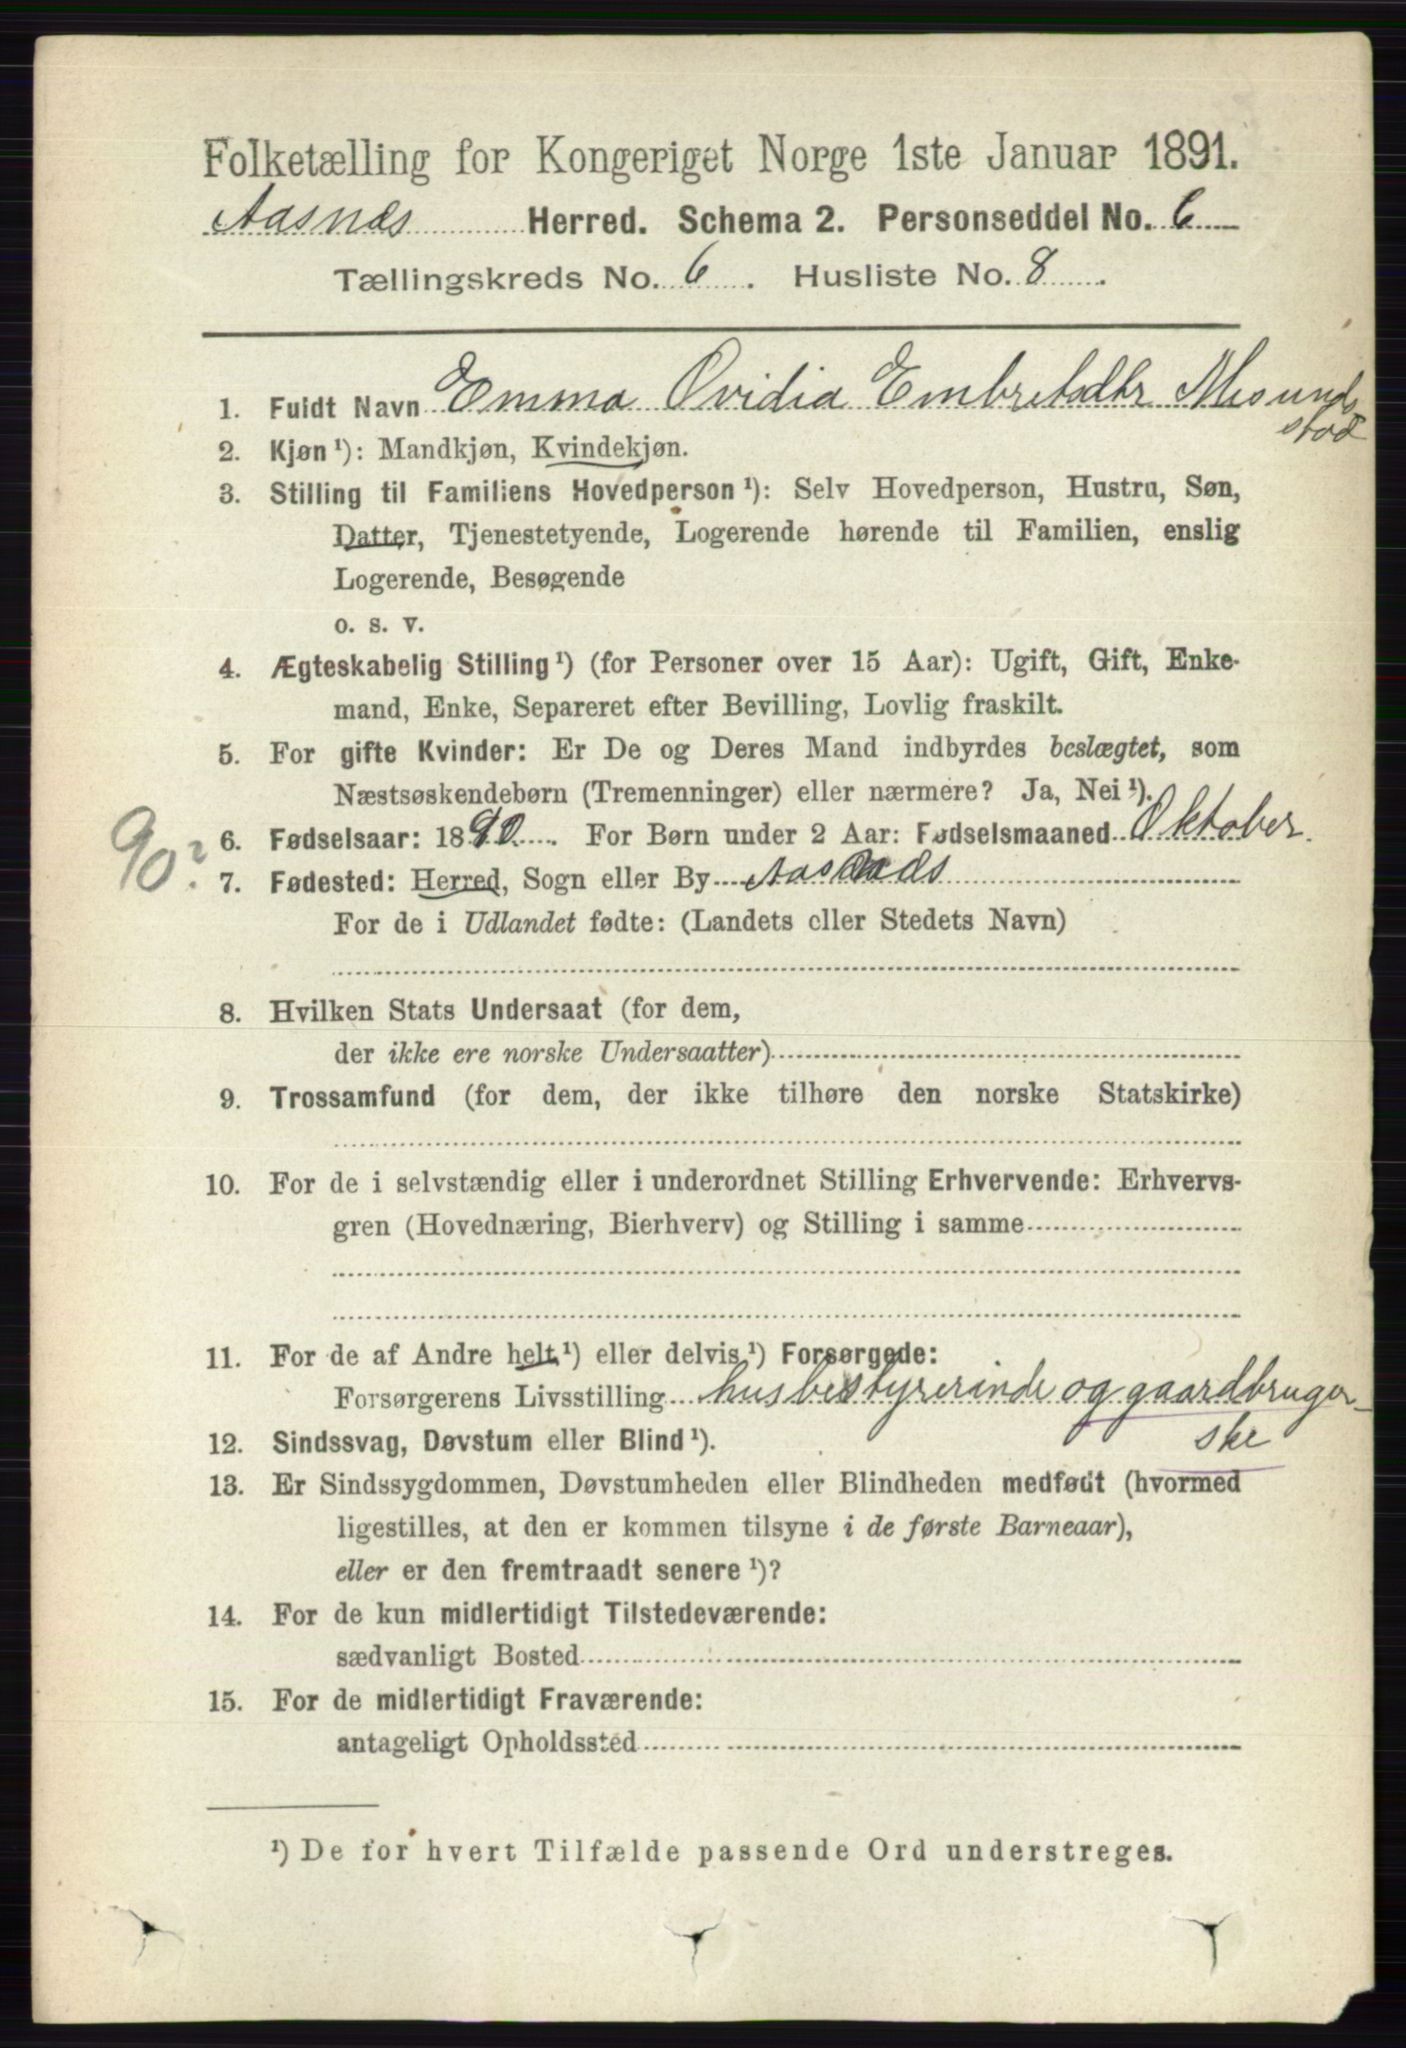 Folketælling for Kongeriget Norge 1ste Januar 1891.
Aasnæs Herred. Schema 2. Personseddel No. 6
Tællingskreds No. 6. Husliste No. 8.
1. Fuldt Navn Emma Ovidia Embretsdtr Mosund
stad
2. Kjøn ¹): Mandkjøn, Kvindekjøn.
3. Stilling til Familiens Hovedperson ¹): Selv Hovedperson, Hustru, Søn,
Datter, Tjenestetyende, Logerende hørende til Familien, enslig
Logerende, Besøgende
o. s. v.
4. Ægteskabelig Stilling ¹) (for Personer over 15 Aar): Ugift, Gift, Enke-
mand, Enke, Separeret efter Bevilling, Lovlig fraskilt.
5. For gifte Kvinder: Er De og Deres Mand indbyrdes beslægtet, som
Næstsøskendebørn (Tremenninger) eller nærmere? Ja, Nei ¹).
90? 6. Fødselsaar: 1890. For Børn under 2 Aar: Fødselsmaaned Oktober.
7. Fødested: Herred, Sogn eller By Aasnæs
For de i Udlandet fødte: (Landets eller Stedets Navn)
8. Hvilken Stats Undersaat (for dem,
der ikke ere norske Undersaatter)
9. Trossamfund (for dem, der ikke tilhøre den norske Statskirke)
10. For de i selvstændig eller i underordnet Stilling Erhvervende: Erhvervs-
gren (Hovednæring, Bierhverv) og Stilling i samme
11. For de af Andre helt ¹) eller delvis ¹) Forsørgede:
Forsørgerens Livsstilling husbestyrerinde og gaardbruger-
ske
12. Sindssvag, Døvstum eller Blind ¹).
13. Er Sindssygdommen, Døvstumheden eller Blindheden medfødt (hvormed
ligestilles, at den er kommen tilsyne i de første Barneaar),
eller er den fremtraadt senere ¹)?
14. For de kun midlertidigt Tilstedeværende:
sædvanligt Bosted
15. For de midlertidigt Fraværende:
antageligt Opholdssted
¹) De for hvert Tilfælde passende Ord understreges.